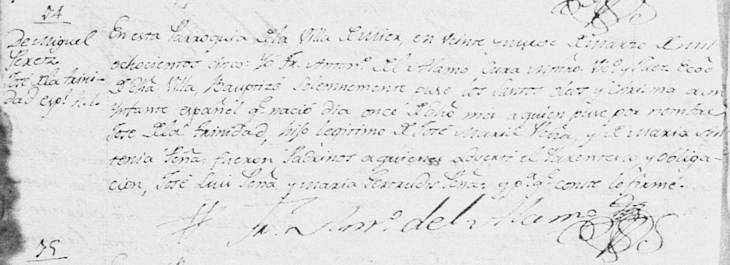 34
De Miguel
Perez
José de la trini-
dad espl. l. l.
En esta Parroquia de la Villa de Mier, en veinte y nueve de Marzo de mil
ochocientos cinco: Yo Fr. Anto. del Alamo, Cura Mntro. Vico. y Juez Ecco.
de dha Villa, Bauptizé solemnemente puse los santos oleos y chrisma a un
Ynfante español qe. nació dia once de dho mes a quien puse por nombre
José de la trinidad, hijo legitimo de José Maria Peña, y de Maria An-
tonia Peña: fueron Padrinos a quienes adverti el Parentesco y obliga-
cion, José Luis Peña y Maria Gertrudis Peña: y pa. qe. conste lo firmé.
Fr. Anto. del Alamo
35